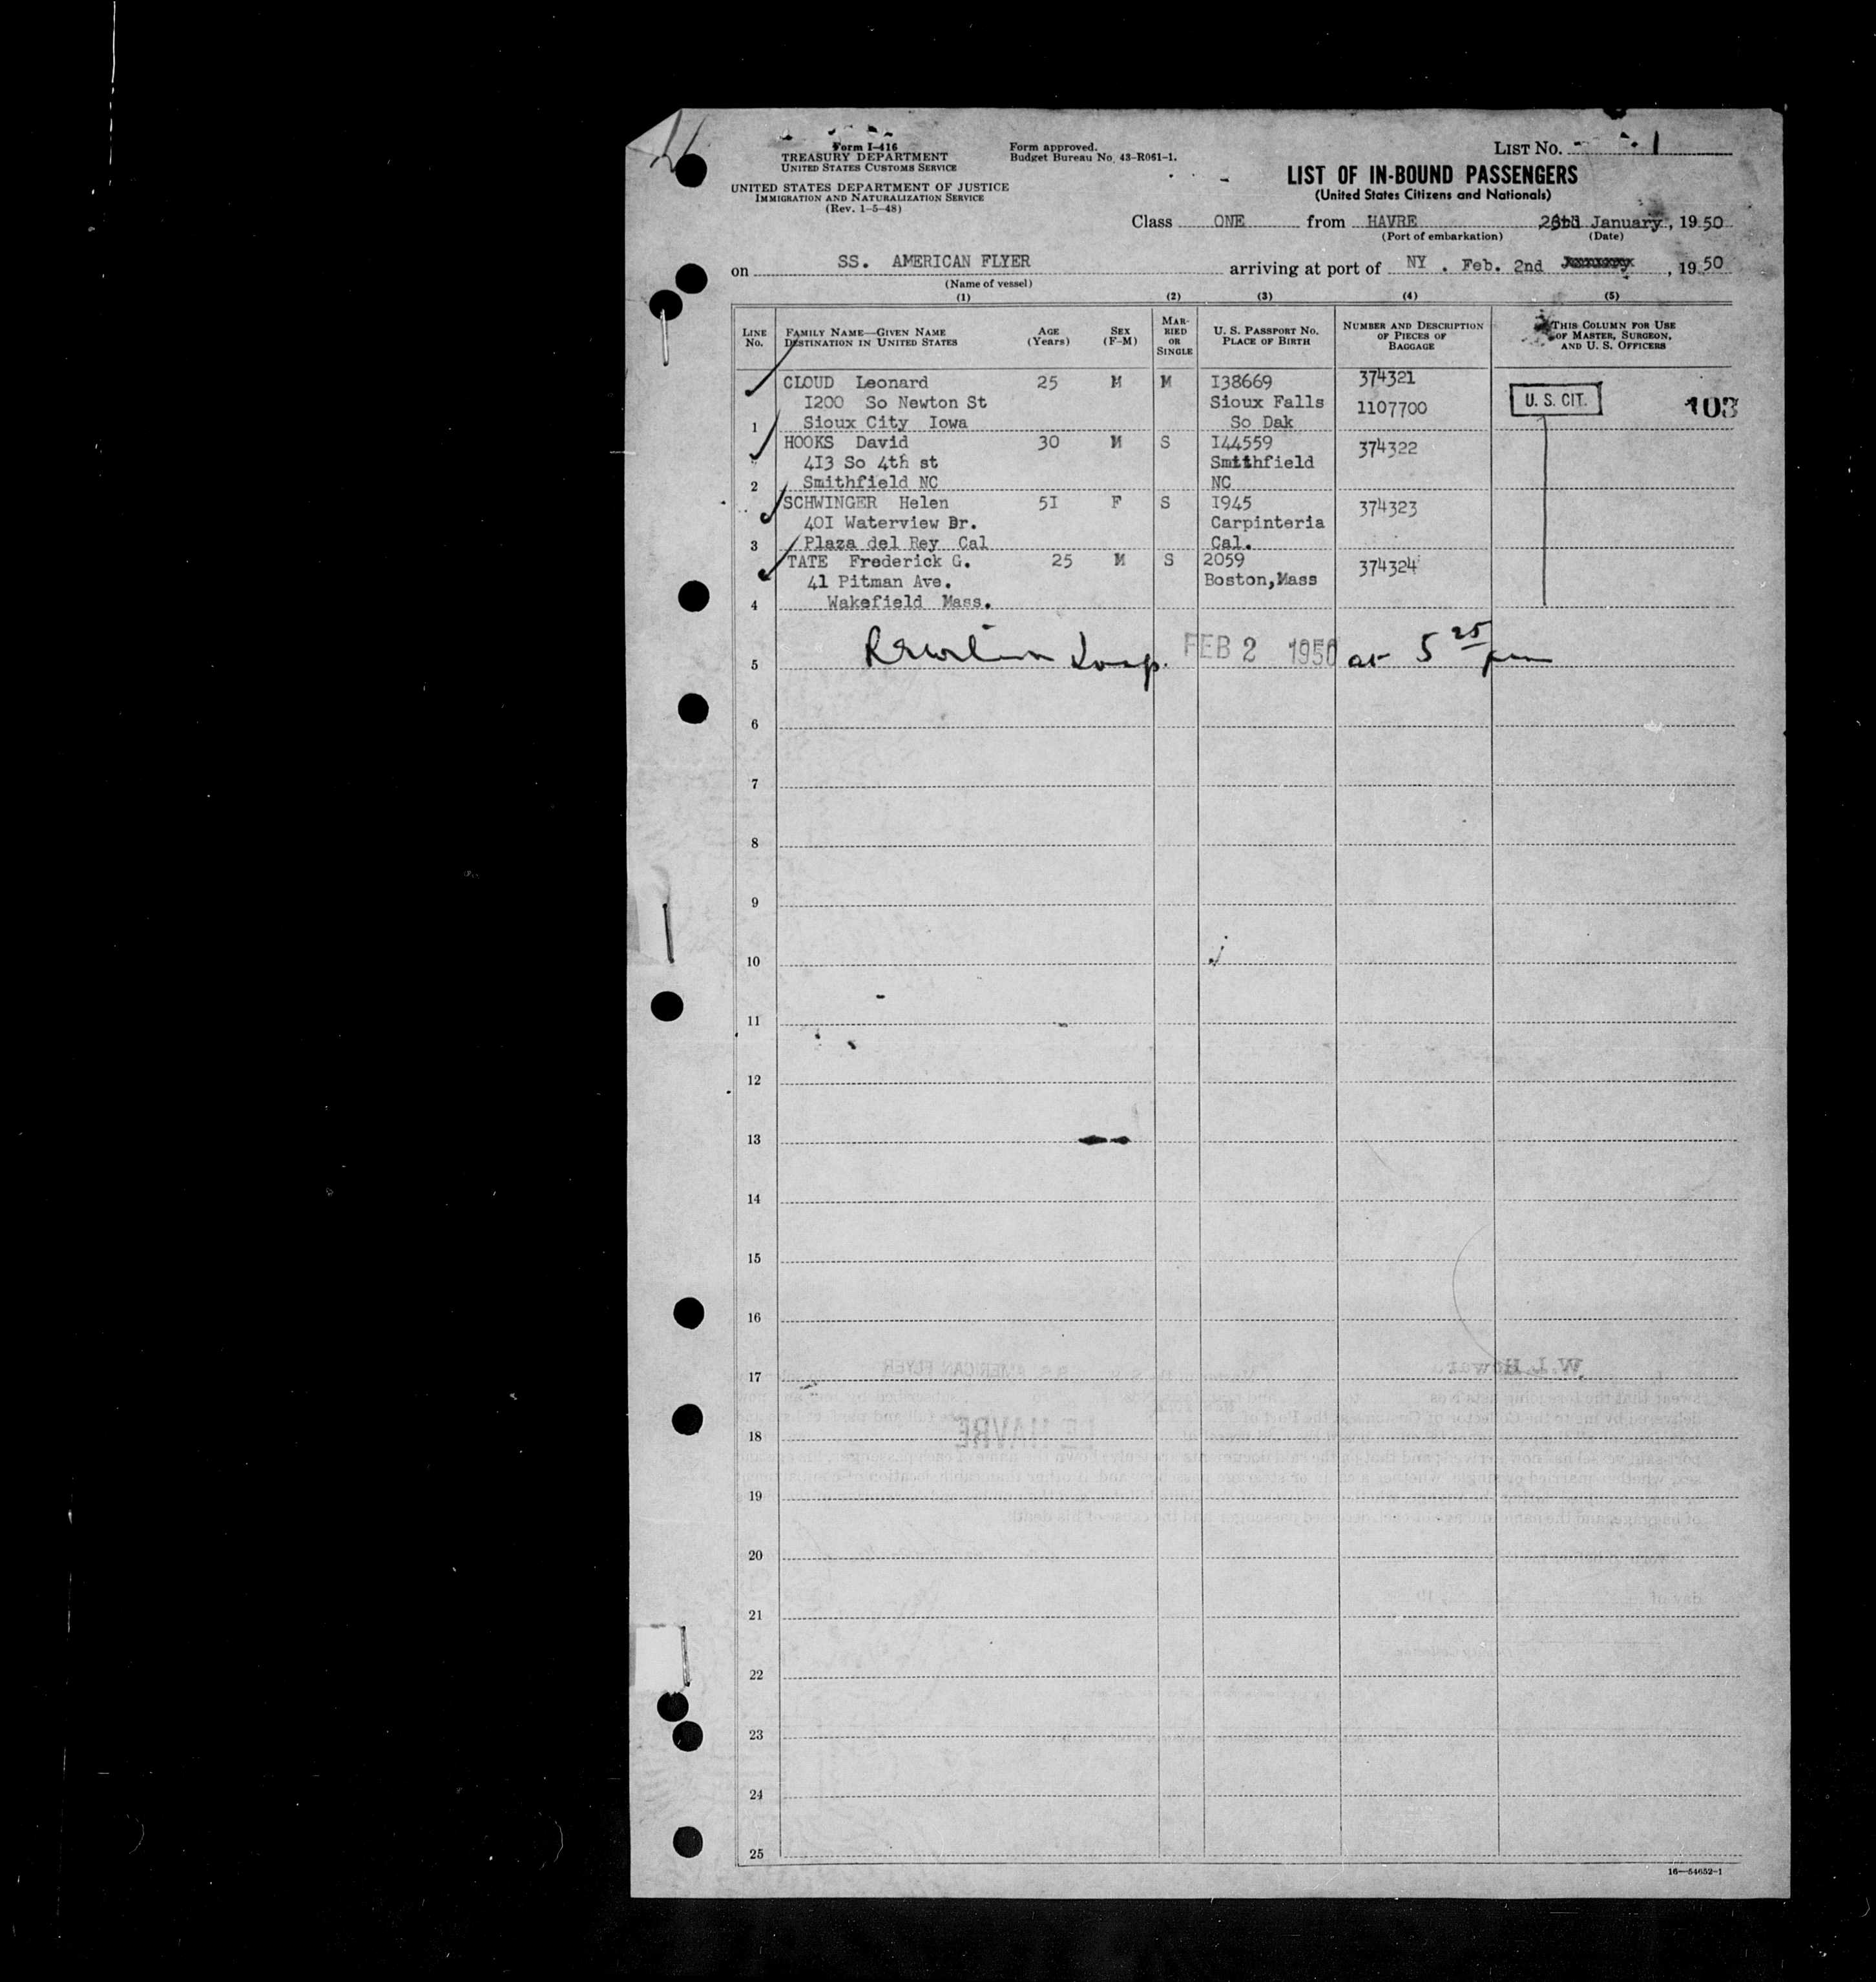 Form I-416
TREASURY DEPARTMENT
UNITED STATES CUSTOMS SERVICE
UNITED STATES DEPARTMENT OF JUSTICE
IMMIGRATION AND NATURALIZATION SERVICE
(Rev. 1-5-48)
Form approved.
Budget Bureau No. 43-R061-1.
LIST NO. 1
LIST OF IN-BOUND PASSENGERS
(United States Citizens and Nationals)
Class ONE from HAVRE January, 1950
(Port of embarkation) (Date)
on SS. AMERICAN FLYER arriving at port of NY. Feb. 2nd, 1950
(Name of vessel)
(1) (2) (3) (4) (5)
LINE NO.
FAMILY NAME—GIVEN NAME
DESTINATION IN UNITED STATES
AGE
(Years)
SEX
(F-M)
MAR-
RIED
OR
SINGLE
U. S. PASSPORT NO.
PLACE OF BIRTH
NUMBER AND DESCRIPTION
OF PIECES OF
BAGGAGE
THIS COLUMN FOR USE
OF MASTER, SURGEON,
AND U. S. OFFICERS
CLOUD Leonard 25 M M I38669 374321
I200 So Newton St Sioux Falls 1107700 U. S. CIT. 103
1 Sioux City Iowa So Dak
HOOKS David 30 M S I44559 374322
4I3 So 4th st Smithfield
2 Smithfield NC NC
SCHWINGER Helen 5I F S I945 374323
40I Waterview Dr. Carpinteria
3 Plaza del Rey Cal Cal.
TATE Frederick G. 25 M S 2059 374324
41 Pitman Ave. Boston,Mass
4 Wakefield Mass.
5 FEB 2 1950 at 5 25 pm
6
7
8
9
10
11
12
13
14
15
16
17
18
19
20
21
22
23
24
25
16—54652-1